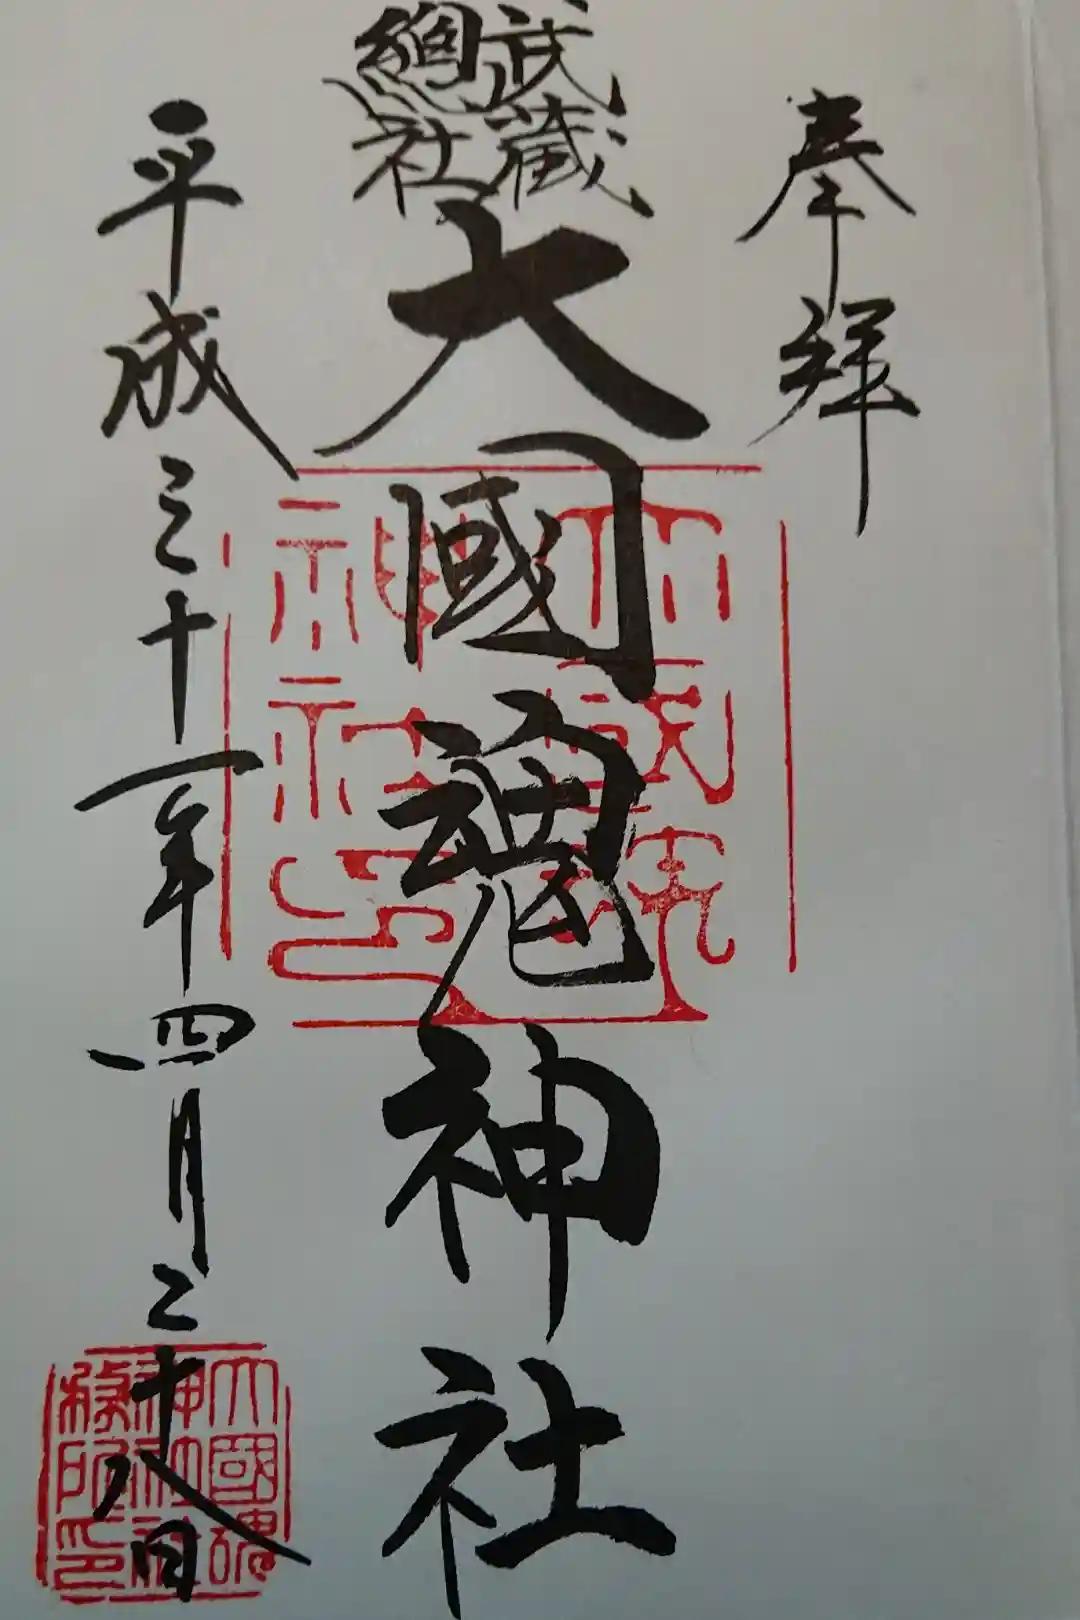 奉拝
武蔵
總社
大國魂神社
平成三十一年四月二十八日
大國魂
神社印
大國魂
神社社
務所印